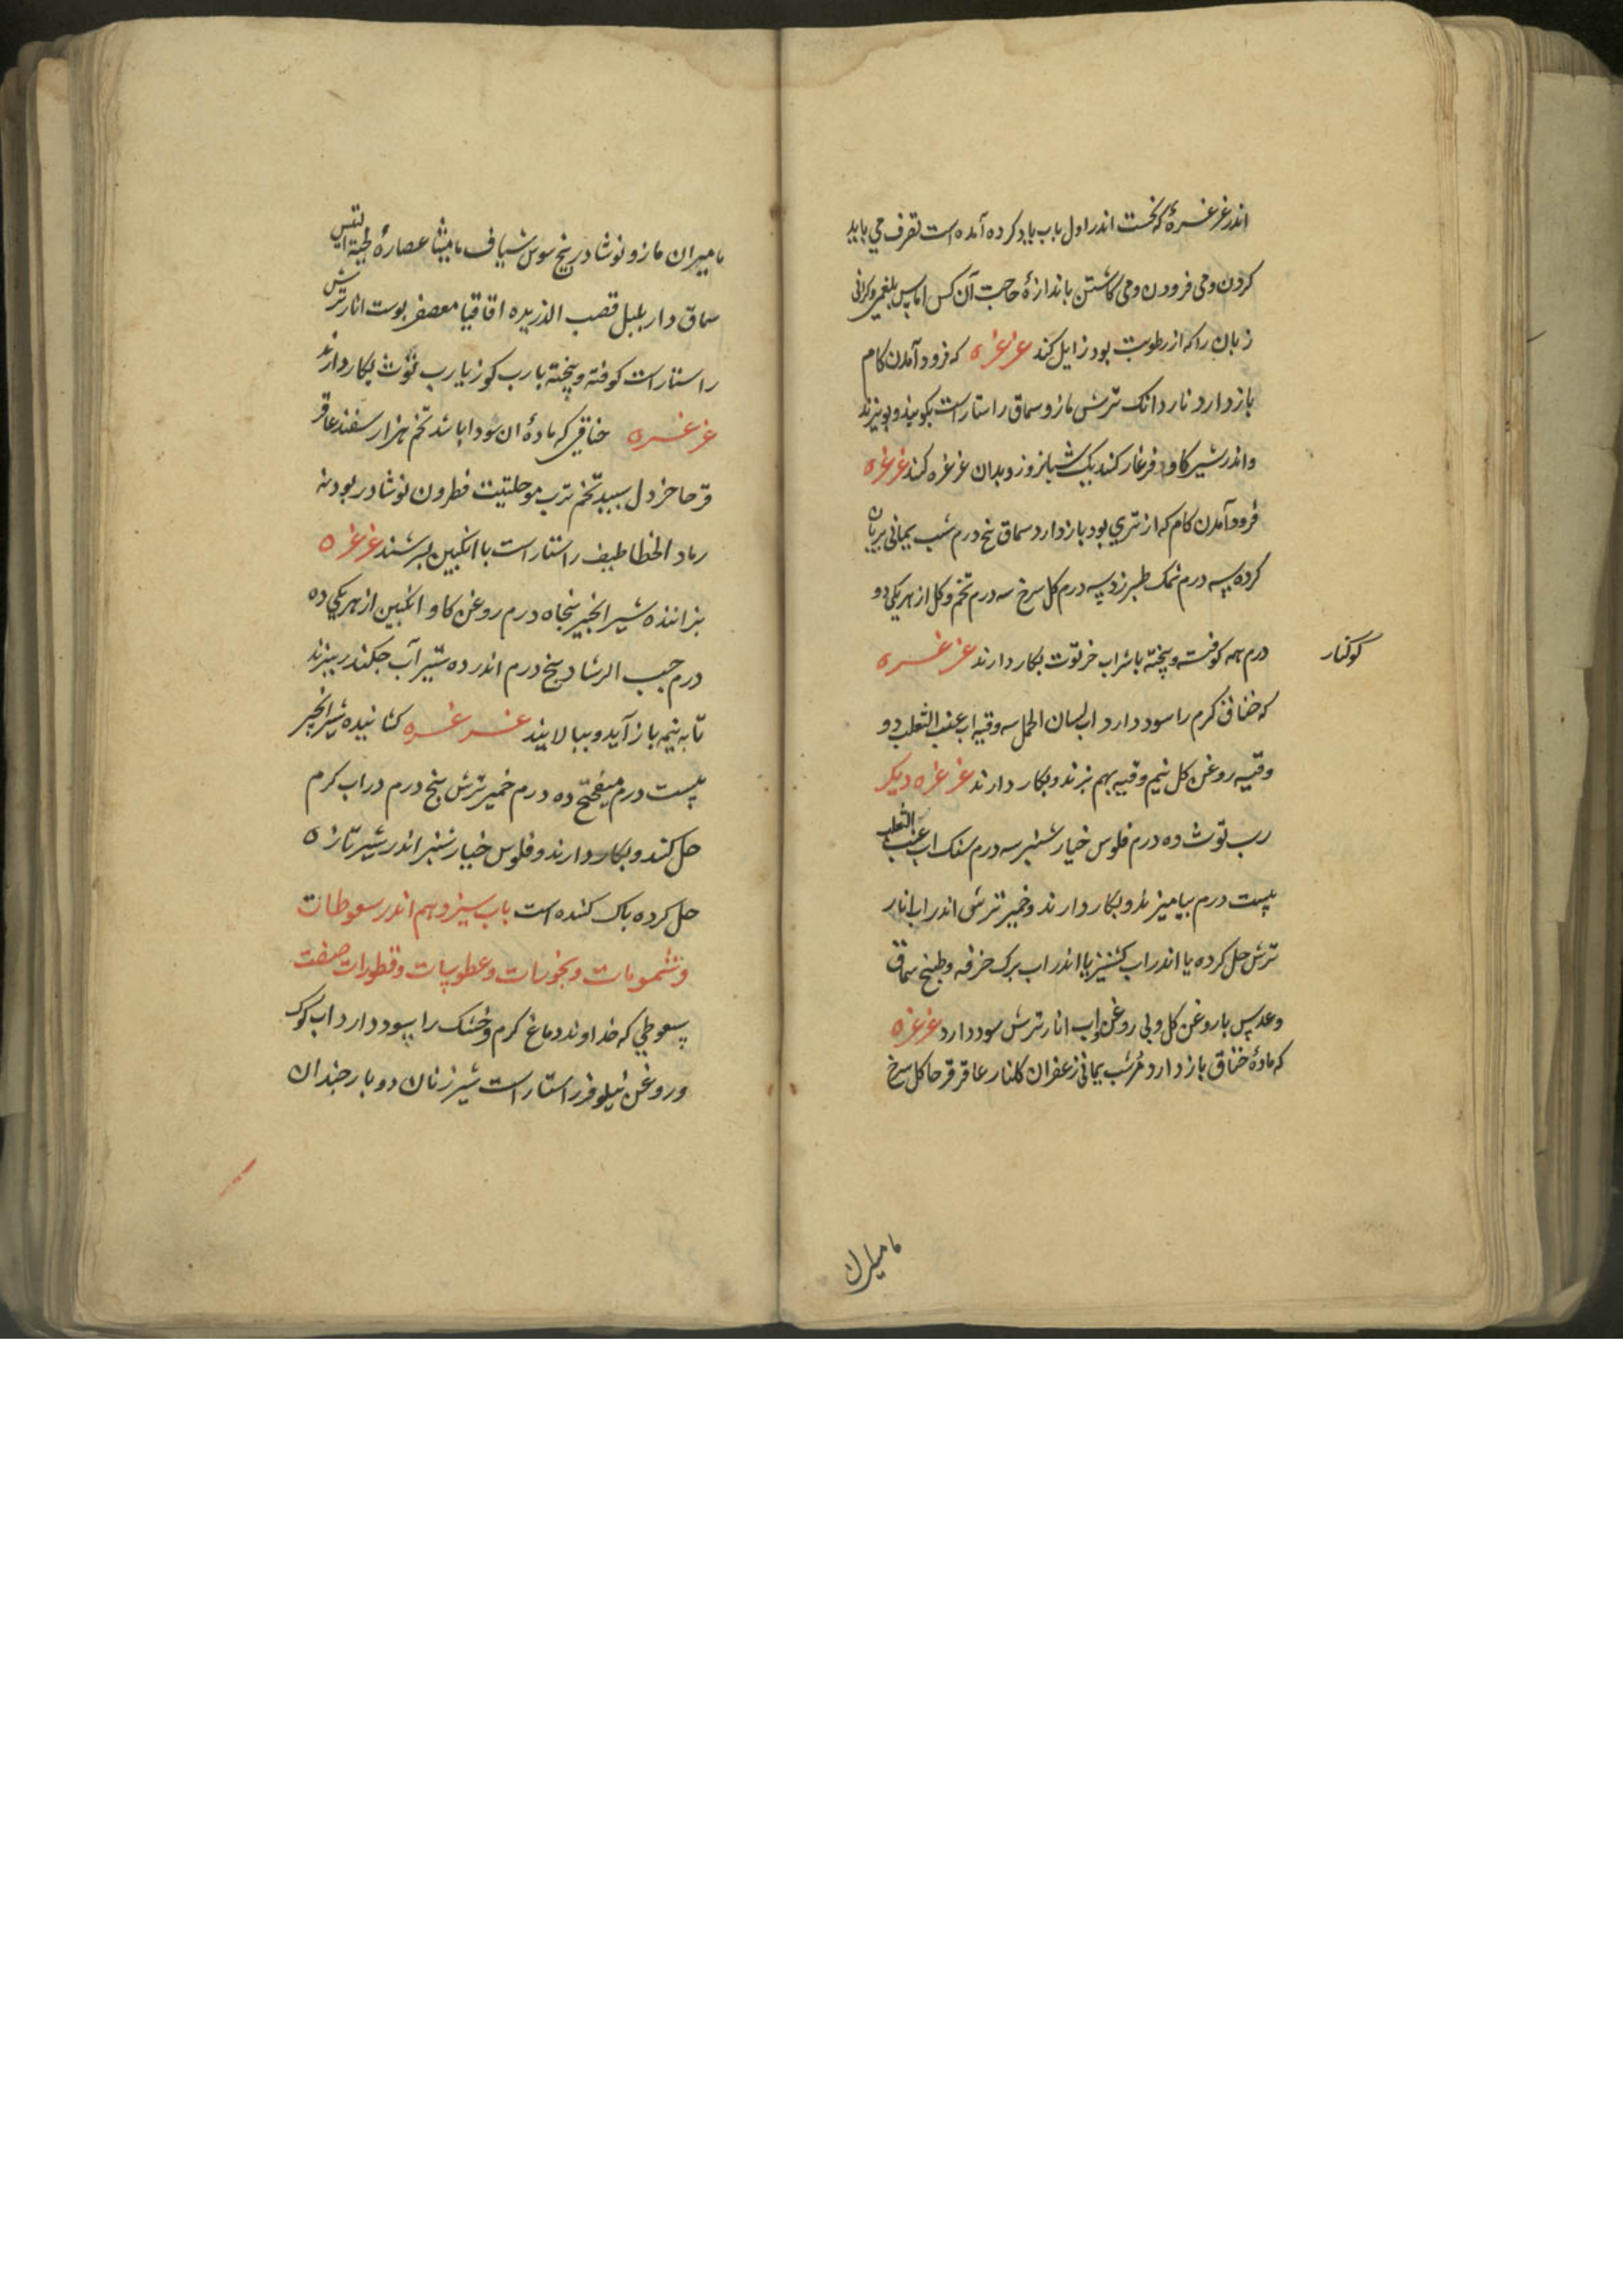 اندر غرغرهٔ که نخست اندر اول باب یاد کرده آمده است تصرف می باید
کردن و می فزودن و می کاستن باندازهٔ حاجت آن کس اماس بلغمی و کرانی
زبان را که از رطوبت بود زایل کند غرغره که فرود آمدن کام
باز دارد نار دانک ترش مازو سماق راستاراست بکوبند و بپزند
و اندر شیر کاو فرغار کنند یک شبانروز و بدان غرغره کنند غرغره
فرود آمدن کام که از تری بود باز دارد سماق پنج درم شب یمانی بریان
کرده سه درم نمک طبرزد سه درم کل سرخ سه درم تخم و کل از هریکی دو
درم همه کوفته و پخته با شراب خرتوت بکار دارند غرغره
کوکنار
که خناق کرم را سود دارد اب لسان الحمل سه وقیه اب عنب الثعلب دو
وقیه روغن کل نیم وقیه بهم بزنند و بکار دارند غرغره دیکر
رب توث ده درم فلوس خیار شنبر سه درم سنک اب عنب الثعلب
بیست درم بیامیزند و بکار دارند و خمیر ترش اندر اب انار
ترش حل کرده یا اندر اب کشنیز یا اندر اب برک خرفه و طبیخ سماق
و عدس با روغن کل و بی روغن و اب انار ترش سود دارد غرغره
که مادهٔ خناق باز دارد مُر شب یمانی زعفران کلنار عاقرقرحا کل سرخ
مامیران
مامیران مازو نوشادر بیخ سوس شیاف مامیثا عصارهٔ لحیة التیس
سماق دار بلبل قصب الذریره اقاقیا معصفر پوست انار ترش
راستاراست کوفته و پخته با رب کوز یا رب توث بکار دارند
غرغره خناقی که مادهٔ ان سودا باشد تخم هزار سفند عاقر
قرحا خردل سپید تخم ترب مو حلتیت فطرون نوشادر بودنه
رماد الخطاطیف راستاراست با انکبین بسرشند غرغره
بزاننده شیر انجیر پنجاه درم روغن کاو انکبین از هریکی ده
درم حب الرشاد پنج درم اندر ده ستیر آب جکندر بپزند
تا به نیمه باز آید و ببالایند غرغره کشانیده شیر انجیر
بیست درم میفختج ده درم خمیر ترش پنج درم در اب کرم
حل کنند و بکار دارند و فلوس خیار شنبر اندر شیر تازه
حل کرده پاک کننده است باب سیزدهم اندر سعوطات
و شمومات و بخورات و عطوسات و قطورات صفت
سعوطی که خداوند دماغ کرم و خشک را سود دارد اب کوک
و روغن نیلوفر راستاراست شیر زنان دو بار جندان